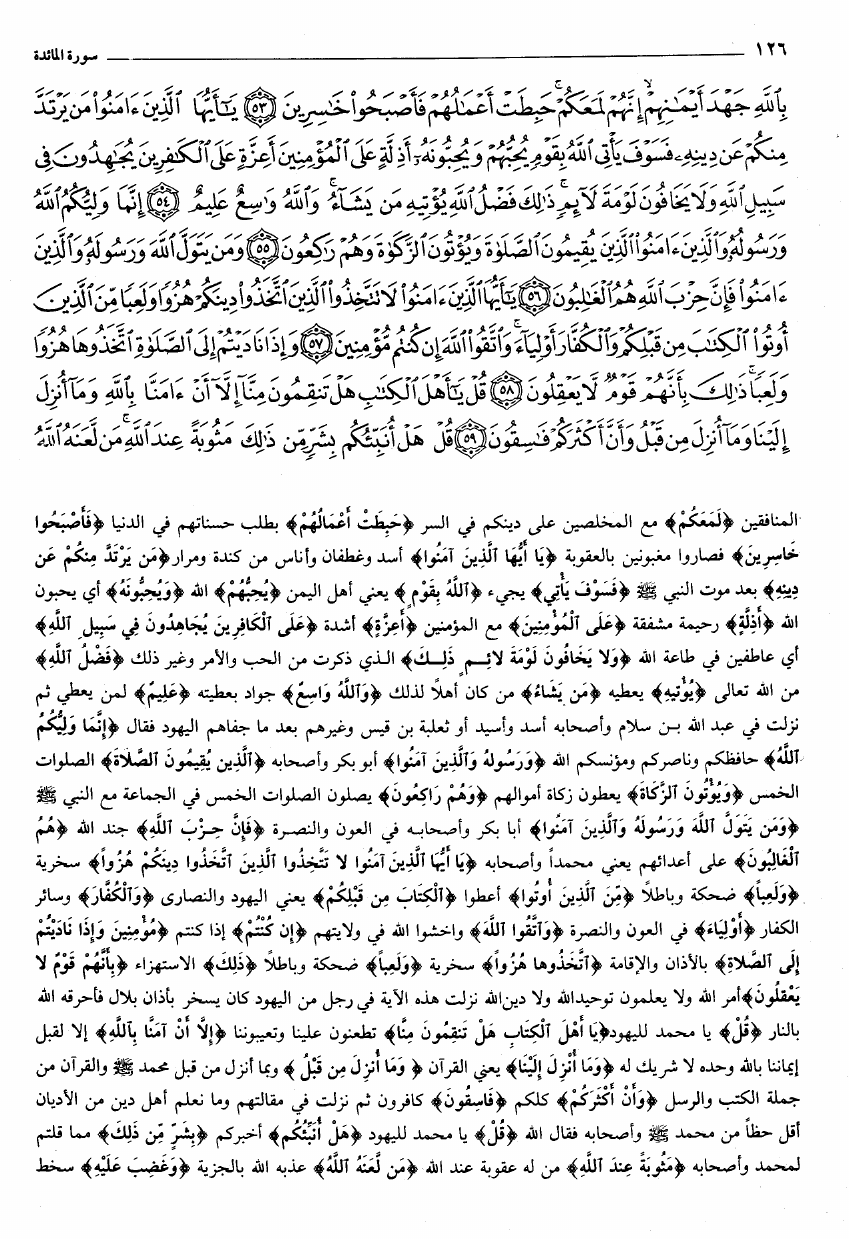 ١٢٦ سورة المائدة
بِٱللَّهِ جَهْدَ أَيْمَـٰنِهِمْ إِنَّهُمْ لَمَعَكُمْ حَبِطَتْ أَعْمَـٰلُهُمْ فَأَصْبَحُوا۟ خَـٰسِرِينَ ﴿٥٣﴾ يَـٰٓأَيُّهَا ٱلَّذِينَ ءَامَنُوا۟ مَن يَرْتَدَّ
مِنكُمْ عَن دِينِهِۦ فَسَوْفَ يَأْتِى ٱللَّهُ بِقَوْمٍ يُحِبُّهُمْ وَيُحِبُّونَهُۥٓ أَذِلَّةٍ عَلَى ٱلْمُؤْمِنِينَ أَعِزَّةٍ عَلَى ٱلْكَـٰفِرِينَ يُجَـٰهِدُونَ فِى
سَبِيلِ ٱللَّهِ وَلَا يَخَافُونَ لَوْمَةَ لَآئِمٍ ۚ ذَٰلِكَ فَضْلُ ٱللَّهِ يُؤْتِيهِ مَن يَشَآءُ ۚ وَٱللَّهُ وَٰسِعٌ عَلِيمٌ ﴿٥٤﴾ إِنَّمَا وَلِيُّكُمُ ٱللَّهُ
وَرَسُولُهُۥ وَٱلَّذِينَ ءَامَنُوا۟ ٱلَّذِينَ يُقِيمُونَ ٱلصَّلَوٰةَ وَيُؤْتُونَ ٱلزَّكَوٰةَ وَهُمْ رَٰكِعُونَ ﴿٥٥﴾ وَمَن يَتَوَلَّ ٱللَّهَ وَرَسُولَهُۥ وَٱلَّذِينَ
ءَامَنُوا۟ فَإِنَّ حِزْبَ ٱللَّهِ هُمُ ٱلْغَـٰلِبُونَ ﴿٥٦﴾ يَـٰٓأَيُّهَا ٱلَّذِينَ ءَامَنُوا۟ لَا تَتَّخِذُوا۟ ٱلَّذِينَ ٱتَّخَذُوا۟ دِينَكُمْ هُزُوًا وَلَعِبًا مِّنَ ٱلَّذِينَ
أُوتُوا۟ ٱلْكِتَـٰبَ مِن قَبْلِكُمْ وَٱلْكُفَّارَ أَوْلِيَآءَ ۚ وَٱتَّقُوا۟ ٱللَّهَ إِن كُنتُم مُّؤْمِنِينَ ﴿٥٧﴾ وَإِذَا نَادَيْتُمْ إِلَى ٱلصَّلَوٰةِ ٱتَّخَذُوهَا هُزُوًا
وَلَعِبًا ۚ ذَٰلِكَ بِأَنَّهُمْ قَوْمٌ لَّا يَعْقِلُونَ ﴿٥٨﴾ قُلْ يَـٰٓأَهْلَ ٱلْكِتَـٰبِ هَلْ تَنقِمُونَ مِنَّآ إِلَّآ أَنْ ءَامَنَّا بِٱللَّهِ وَمَآ أُنزِلَ
إِلَيْنَا وَمَآ أُنزِلَ مِن قَبْلُ وَأَنَّ أَكْثَرَكُمْ فَـٰسِقُونَ ﴿٥٩﴾ قُلْ هَلْ أُنَبِّئُكُم بِشَرٍّ مِّن ذَٰلِكَ مَثُوبَةً عِندَ ٱللَّهِ ۚ مَن لَّعَنَهُ ٱللَّهُ
المنافقين ﴿لَمَعَكُمْ﴾ مع المخلصين على دينكم في السر ﴿حَبِطَتْ أَعْمَالُهُمْ﴾ بطلب حسناتهم في الدنيا ﴿فَأَصْبَحُوا
خَاسِرِينَ﴾ فصاروا مغبونين بالعقوبة ﴿يَا أَيُّهَا ٱلَّذِينَ آمَنُوا﴾ أسد وغطفان وأناس من كندة ومرار ﴿مَن يَرْتَدَّ مِنكُمْ عَن
دِينِهِ﴾ بعد موت النبي ﷺ ﴿فَسَوْفَ يَأْتِي﴾ يجيء ﴿ٱللَّهُ بِقَوْمٍ﴾ يعني أهل اليمن ﴿يُحِبُّهُمْ﴾ الله ﴿وَيُحِبُّونَهُ﴾ أي يحبون
الله ﴿أَذِلَّةٍ﴾ رحيمة مشفقة ﴿عَلَى ٱلْمُؤْمِنِينَ﴾ مع المؤمنين ﴿أَعِزَّةٍ﴾ أشدة ﴿عَلَى ٱلْكَافِرِينَ يُجَاهِدُونَ فِي سَبِيلِ ٱللَّهِ﴾
أي عاطفين في طاعة الله ﴿وَلَا يَخَافُونَ لَوْمَةَ لائِمٍ ذَلِكَ﴾ الذي ذكرت من الحب والأمر وغير ذلك ﴿فَضْلُ ٱللَّهِ﴾
من الله تعالى ﴿يُؤْتِيهِ﴾ يعطيه ﴿مَن يَشَاءُ﴾ من كان أهلاً لذلك ﴿وَٱللَّهُ وَاسِعٌ﴾ جواد بعطيته ﴿عَلِيمٌ﴾ لمن يعطي ثم
نزلت في عبد الله بن سلام وأصحابه أسد وأسيد أو ثعلبة بن قيس وغيرهم بعد ما جفاهم اليهود فقال ﴿إِنَّمَا وَلِيُّكُمُ
ٱللَّهُ﴾ حافظكم وناصركم ومؤنسكم الله ﴿وَرَسُولُهُ وَٱلَّذِينَ آمَنُوا﴾ أبو بكر وأصحابه ﴿ٱلَّذِينَ يُقِيمُونَ ٱلصَّلَاةَ﴾ الصلوات
الخمس ﴿وَيُؤْتُونَ ٱلزَّكَاةَ﴾ يعطون زكاة أموالهم ﴿وَهُمْ رَاكِعُونَ﴾ يصلون الصلوات الخمس في الجماعة مع النبي ﷺ
﴿وَمَن يَتَوَلَّ ٱللَّهَ وَرَسُولَهُ وَٱلَّذِينَ آمَنُوا﴾ أبا بكر وأصحابه في العون والنصرة ﴿فَإِنَّ حِزْبَ ٱللَّهِ﴾ جند الله ﴿هُمُ
ٱلْغَالِبُونَ﴾ على أعدائهم يعني محمداً وأصحابه ﴿يَا أَيُّهَا ٱلَّذِينَ آمَنُوا لَا تَتَّخِذُوا ٱلَّذِينَ ٱتَّخَذُوا دِينَكُمْ هُزُواً﴾ سخرية
﴿وَلَعِباً﴾ ضحكة وباطلاً ﴿مِّنَ ٱلَّذِينَ أُوتُوا﴾ أعطوا ﴿ٱلْكِتَابَ مِن قَبْلِكُمْ﴾ يعني اليهود والنصارى ﴿وَٱلْكُفَّارَ﴾ وسائر
الكفار ﴿أَوْلِيَاءَ﴾ في العون والنصرة ﴿وَٱتَّقُوا ٱللَّهَ﴾ واخشوا الله في ولايتهم ﴿إِن كُنْتُمْ﴾ إذا كنتم ﴿مُؤْمِنِينَ وَإِذَا نَادَيْتُمْ
إِلَى ٱلصَّلَاةِ﴾ بالأذان والإقامة ﴿ٱتَّخَذُوها هُزُواً﴾ سخرية ﴿وَلَعِباً﴾ ضحكة وباطلاً ﴿ذَلِكَ﴾ الاستهزاء ﴿بِأَنَّهُمْ قَوْمٌ لَا
يَعْقِلُونَ﴾ أمر الله ولا يعلمون توحيدالله ولا دين الله نزلت هذه الآية في رجل من اليهود كان يسخر بأذان بلال فأحرقه الله
بالنار ﴿قُلْ﴾ يا محمد لليهود ﴿يَا أَهْلَ ٱلْكِتَابِ هَلْ تَنقِمُونَ مِنَّا﴾ تطعنون علينا وتعيبوننا ﴿إِلَّا أَنْ آمَنَّا بِٱللَّهِ﴾ إلا لقبل
إيماننا بالله وحده لا شريك له ﴿وَمَا أُنْزِلَ إِلَيْنَا﴾ يعني القرآن ﴿وَمَا أُنزِلَ مِن قَبْلُ﴾ وبما أنزل من قبل محمد ﷺ والقرآن من
جملة الكتب والرسل ﴿وَأَنَّ أَكْثَرَكُمْ﴾ كلكم ﴿فَاسِقُونَ﴾ كافرون ثم نزلت في مقالتهم وما نعلم أهل دين من الأديان
أقل حظاً من محمد ﷺ وأصحابه فقال الله ﴿قُلْ﴾ يا محمد لليهود ﴿هَلْ أُنَبِّئُكُم﴾ أخبركم ﴿بِشَرٍّ مِّن ذَلِكَ﴾ مما قلتم
لمحمد وأصحابه ﴿مَثُوبَةً عِندَ ٱللَّهِ﴾ من له عقوبة عند الله ﴿مَن لَّعَنَهُ ٱللَّهُ﴾ عذبه الله بالجزية ﴿وَغَضِبَ عَلَيْهِ﴾ سخط